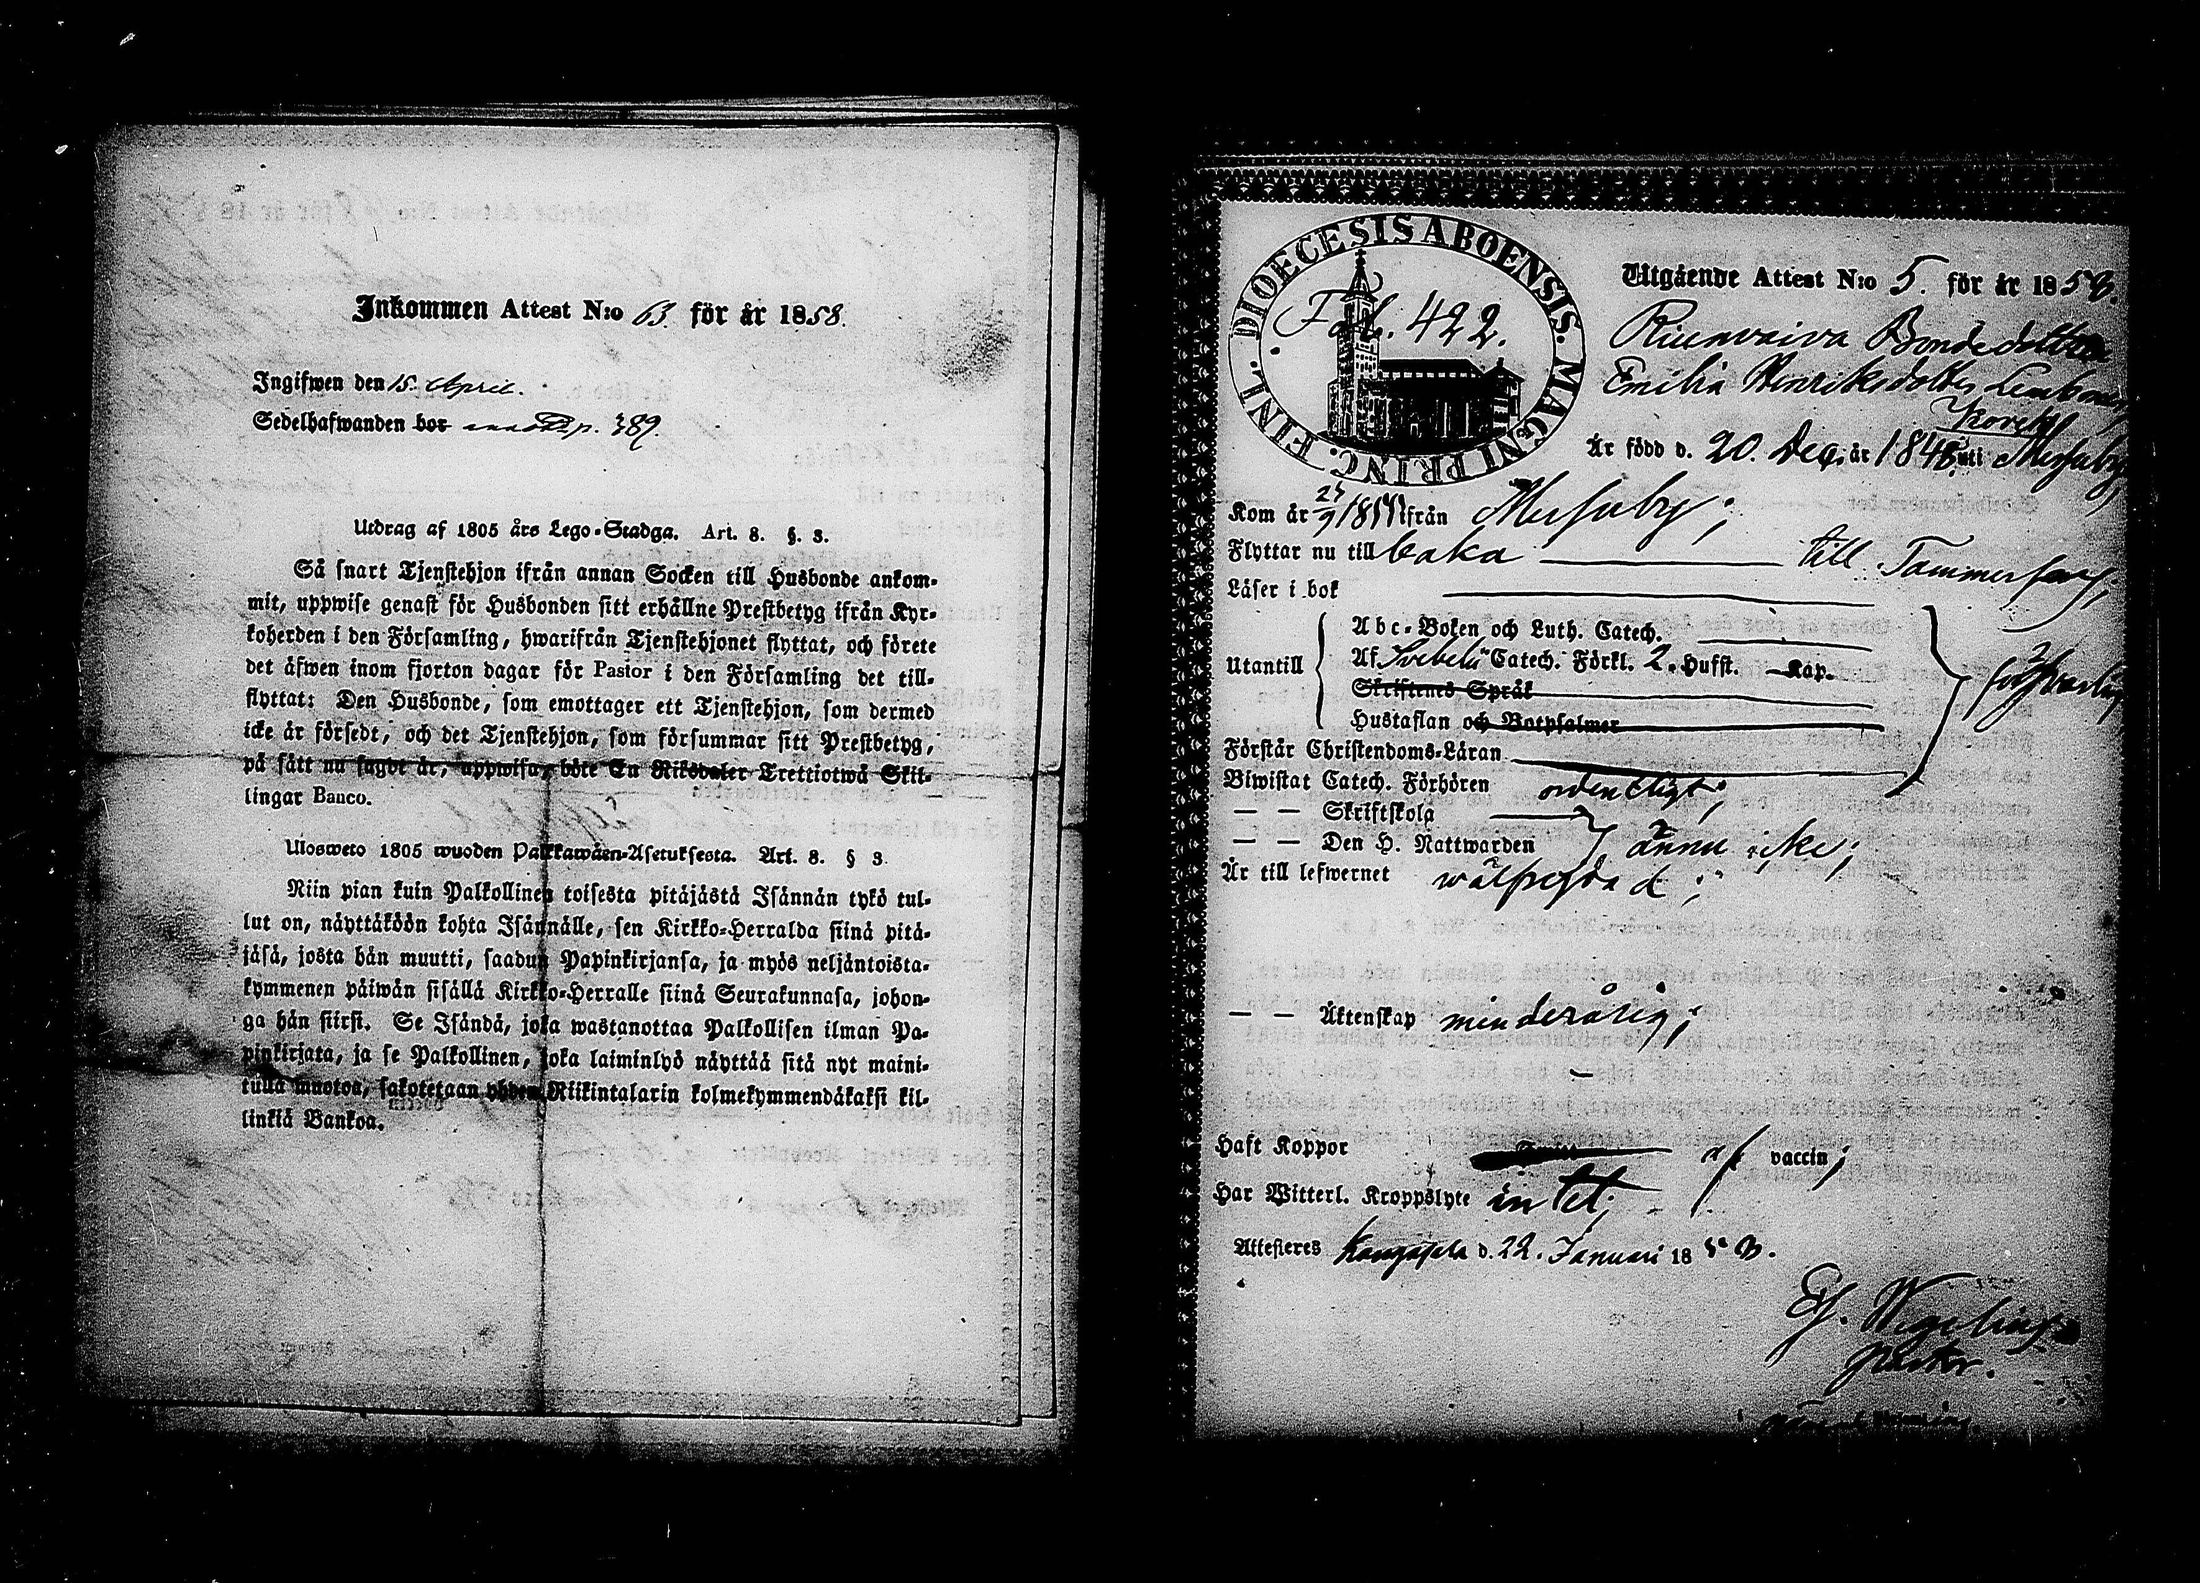 Inkommen Attest N:o 63. för år 1858.
Ingifwen den 15. April.
Sedelhafwanden bor p. 389.
Utdrag af 1805 års Lego-Stadga. Art. 8. §. 3.
Så snart Tjenstehjon ifrån annan Socken till Husbonde ankom-
mit, uppwise genast för Husbonden sitt erhållne Prestbetyg ifrån Kyr-
koherden i den Församling, hwarifrån Tjenstehjonet flyttat, och förete
det äfwen inom fjorton dagar för Pastor i den Församling det till-
flyttat: Den Husbonde, som emottager ett Tjenstehjon, som dermed
icke är försedt, och det Tjenstehjon, som försummar sitt Prestbetyg,
på sätt nu sagdt är, uppwisa, böte En Riksdaler Trettiotwå Skil-
lingar Banco.
Ulosweto 1805 wuoden Palkkawäen-Asetuksesta. Art. 8. § 3.
Niin pian kuin Palkollinen toisesta pitäjästä Isännän tykö tul-
lut on, näyttäköön kohta Isännälle, sen Kirkko-Herralda siinä pitä-
jäsä, josta hän muutti, saadun Papinkirjansa, ja myös neljäntoista-
kymmenen päiwän sisällä Kirkko-Herralle siinä Seurakunnasa, johon-
ga hän siirsi. Se Isändä, joka wastanottaa Palkollisen ilman Pa-
pinkirjata, ja se Palkollinen, joka laiminlyö näyttää sitä nyt maini-
tulla muotoa, sakotetaan yhden Riikintalarin kolmekymmendäkaksi kil-
linkiä Bankoa.
DIOECESIS ABOENSIS. MAGNI PRINC. FINL.
Fol. 422.
Utgående Attest N:o 5. för år 1858.
Bondedottren
Emilia Henriksdotter
Är född d. 20. Dec. år 1848. uti Messuby
Kom år 18 ifrån Messuby;
Flyttar nu till baka till Tammerfors;
Läser i bok
Utantill
Abc-Boken och Luth. Catech.
Af Svebelii Catech. Förkl. 2. Hufst. Kap.
Skriftenes Språk
Hustaflan och Botpsalmer
försvarligt
Förstår Christendoms-Läran
Biwistat Catech. Förhören ordentligt;
— — Skriftskola
— — Den H. Nattwarden ännu icke;
Är till lefwernet wälfrejdad;
— — Äktenskap minderårig;
Haft Koppor af vaccin;
Har Witterl. Kroppslyte intet;
Attesteras Kangasala d. 22. Januari 1858.
Wegelius
pastor.